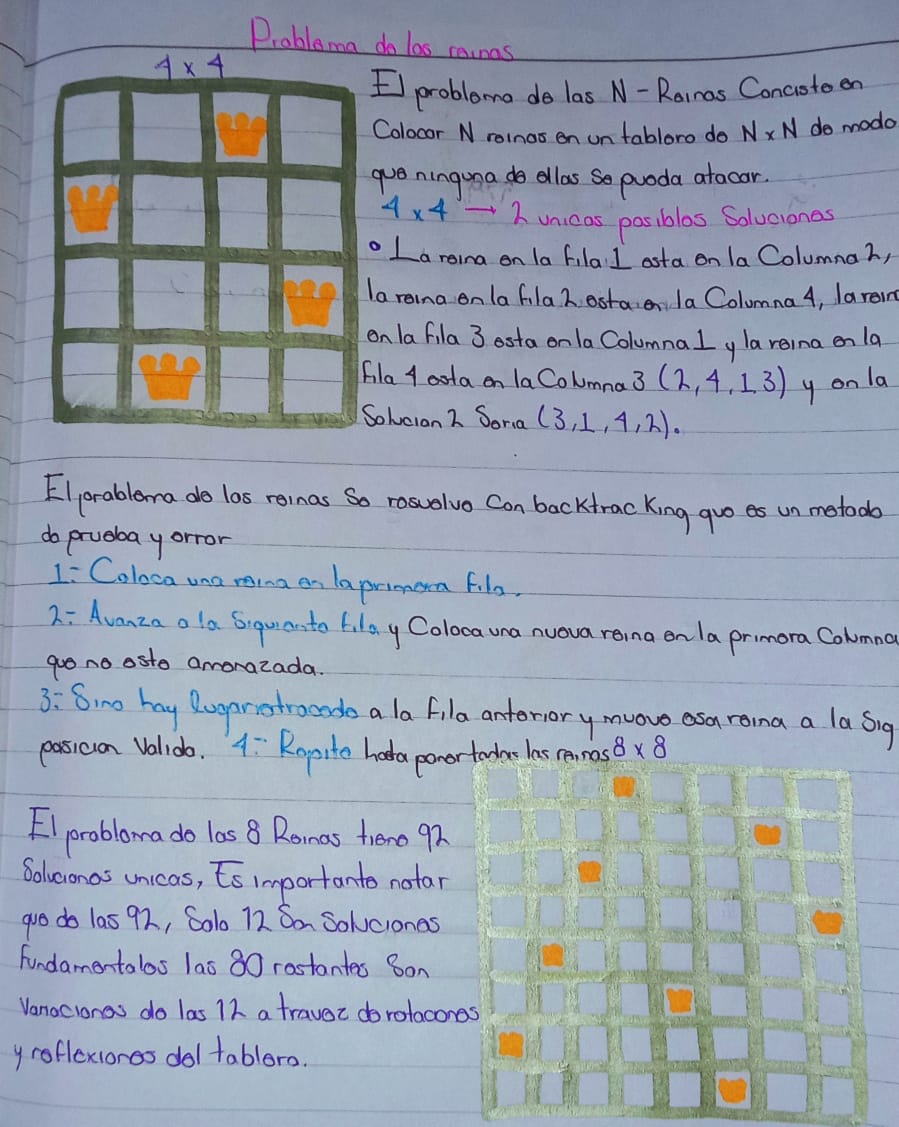 Problema de las reinas
4 x 4
El problema de las N - Reinas Consiste en
Colocar N reinas en un tablero de N x N de modo
que ninguna de ellas se pueda atacar.
4 x 4 → 2 unicas posibles Soluciones
• La reina en la fila 1 esta en la Columna 2,
la reina en la fila 2 esta en la Columna 4, la rein
en la fila 3 esta en la Columna 1 y la reina en la
fila 4 esta en la Columna 3 (2, 4, 1, 3) y en la
Solucion 2 Seria (3, 1, 4, 2).
El problema de las reinas Se resuelve Con backtracking que es un metodo
de prueba y error
1:- Coloca una reina en la primera fila.
2:- Avanza a la Siguiente fila y Coloca una nueva reina en la primera Columna
que no este amenazada.
3:- Sino hay lugar retrocede a la fila anterior y mueve esa reina a la Sig
posicion Valida. 4:- Repite hasta poner todas las reinas 8 x 8
El problema de las 8 Reinas tiene 92
Soluciones unicas, Es importante notar
que de las 92, Solo 12 Son Soluciones
fundamentales las 80 restantes Son
Variaciones de las 12 a travez de rotacones
y reflexiones del tablero.